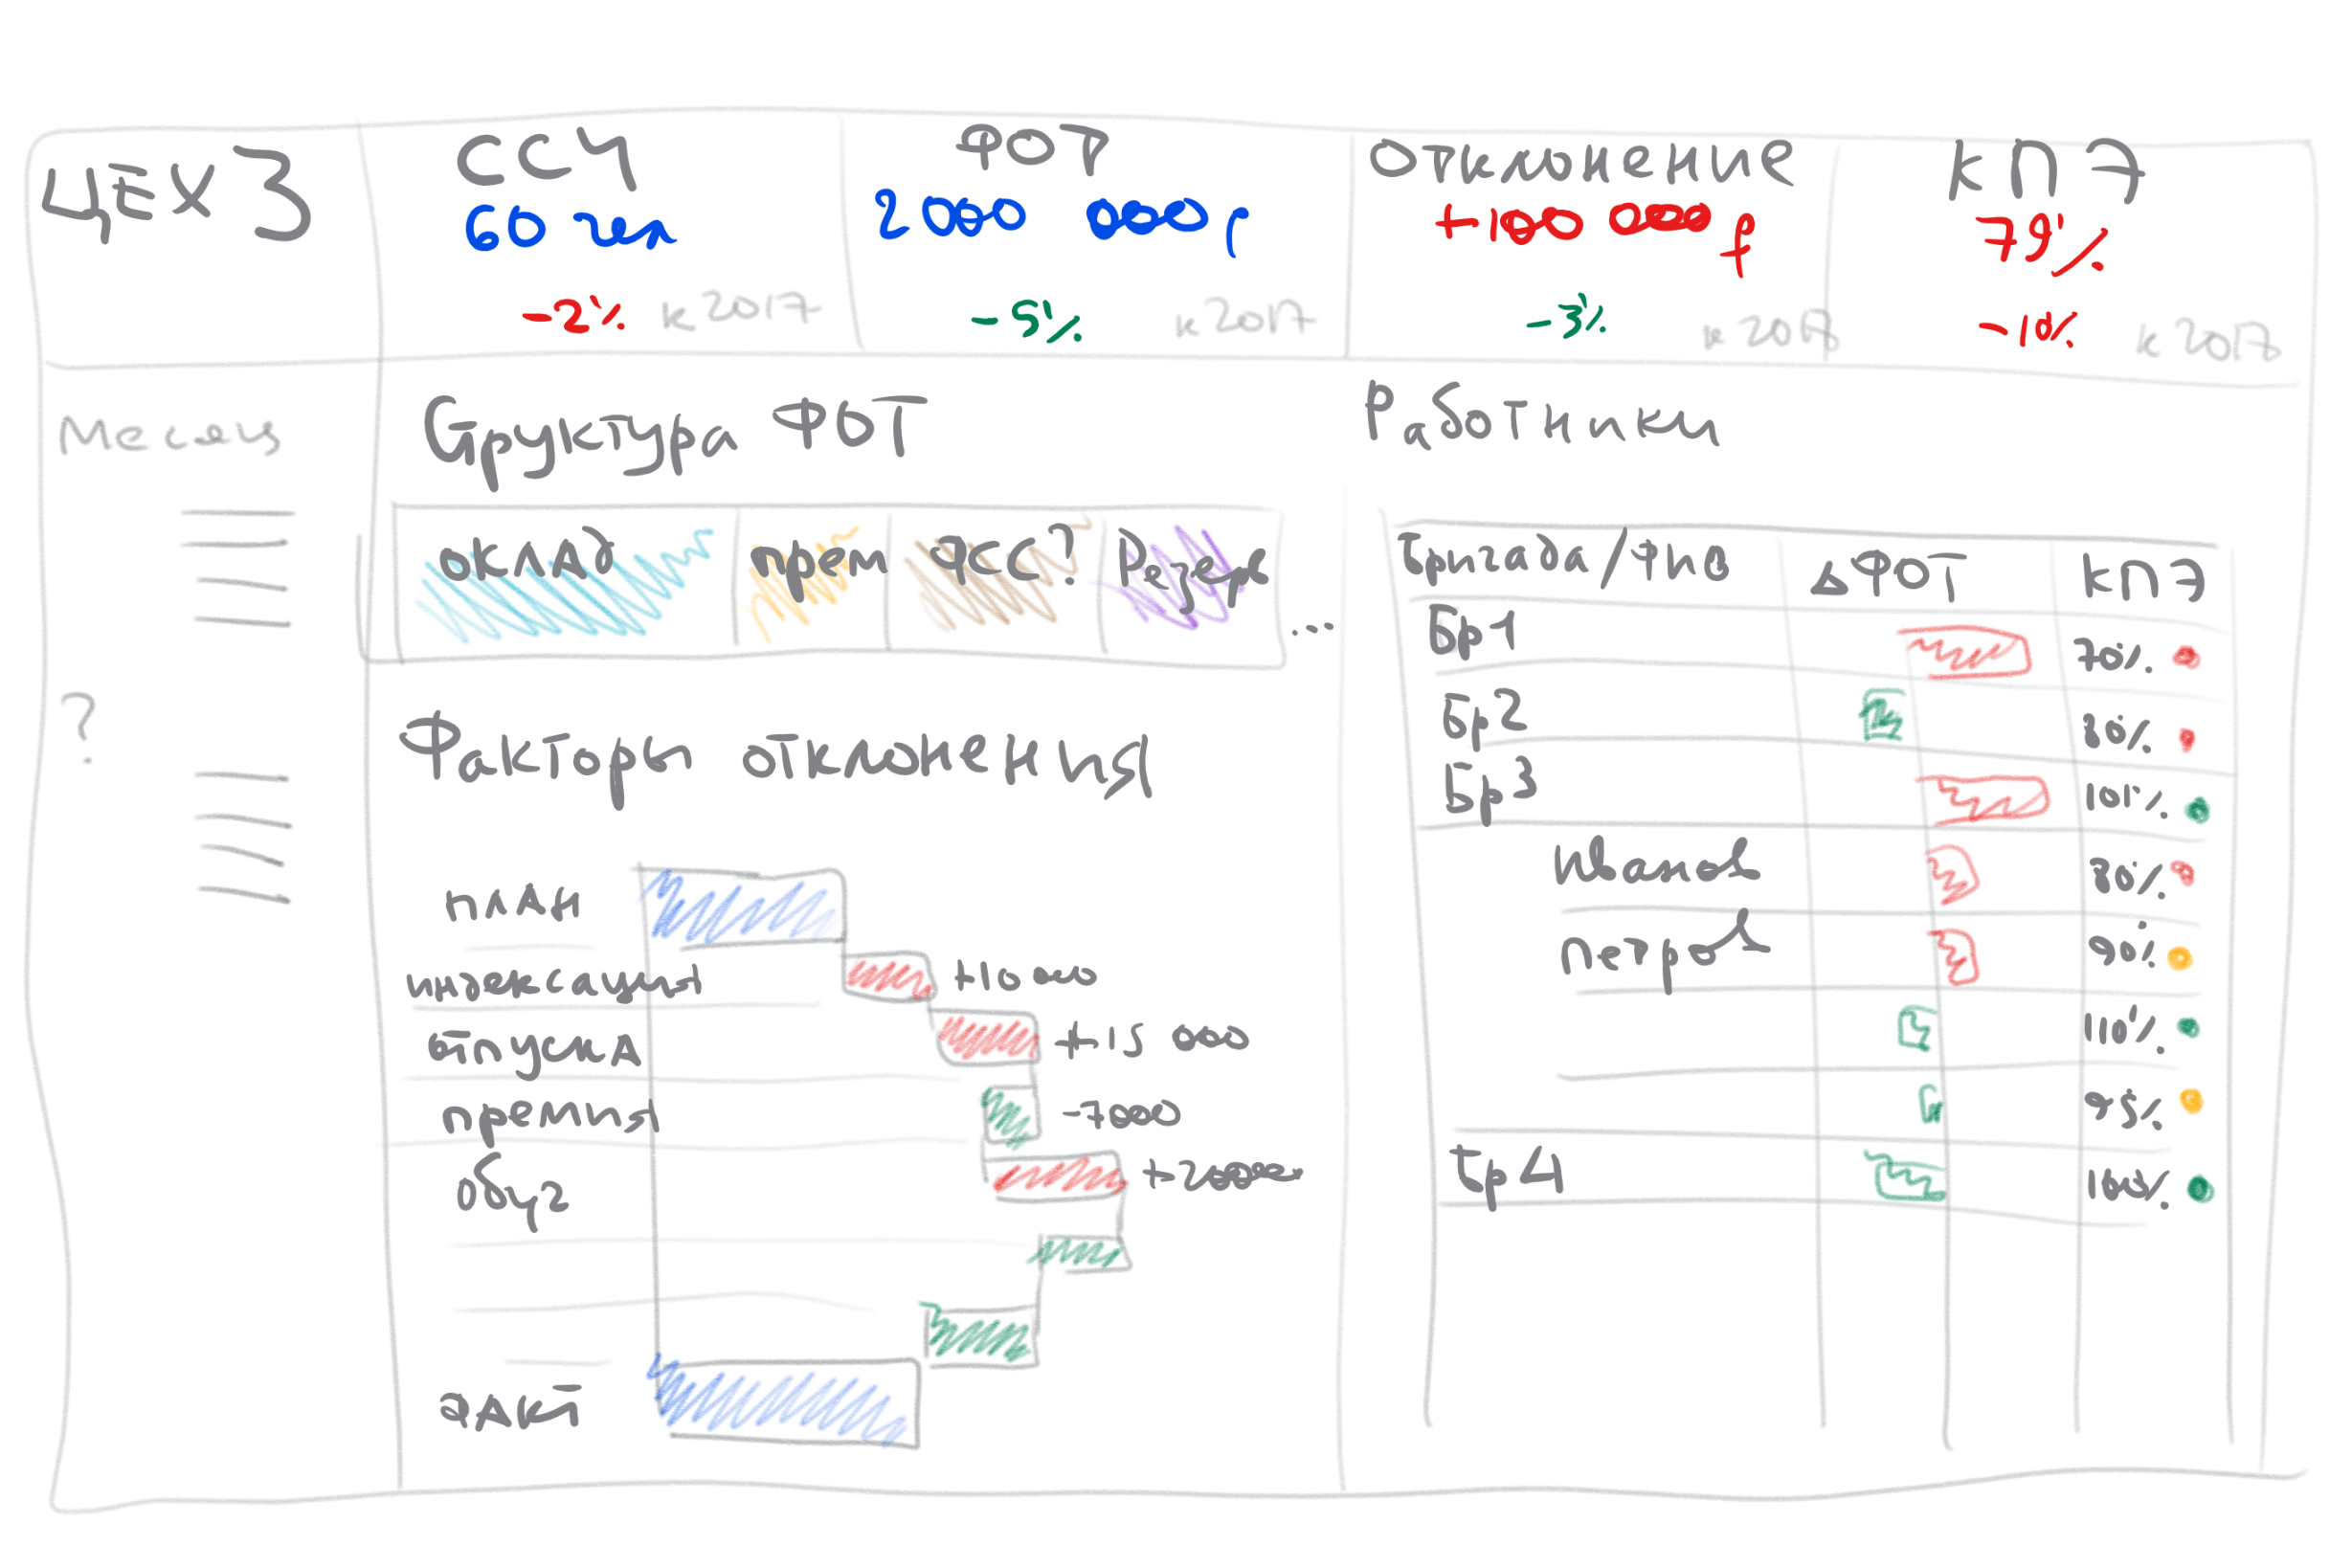 ЦЕХ 3
ССЧ
60 чел
-2% к 2017
ФОТ
2000 000 р
-5% к 2017
Отклонение
+100 000 р
-3% к 2017
КПЭ
79%
-10% к 2017
Месяц
?
Структура ФОТ
оклад прем ФСС? Резерв ...
Факторы отклонения
план
индексация +10 000
отпуска +15 000
премия -7000
обуч +20000
факт
Работники
Бригада/ФИО ΔФОТ КПЭ
Бр1 70%
Бр2 80%
Бр3 101%
Иванов 80%
Петров 90%
110%
95%
Бр4 100%